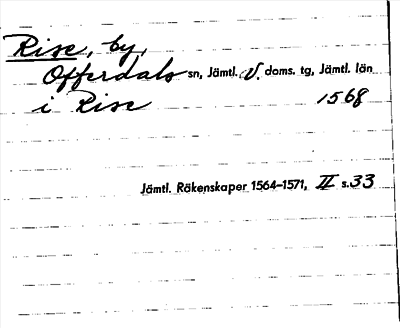 Rise, by,
Offerdals sn, Jämtl. V. doms. tg, Jämtl. län
i Rise 1568
Jämtl. Räkenskaper 1564–1571, II s. 33